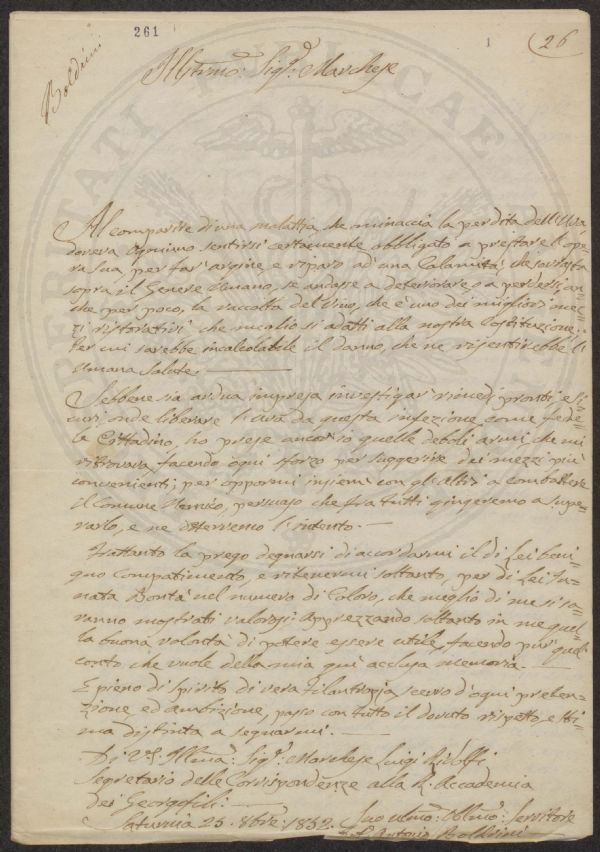 261
1
26
Boldrini
Illustrmo: Sigr. Marchese
Al comparire di una malattia, che minaccia la perdita dell'Uva
doveva Ogniuno sentirsi certamente obbligato a prestare l'ope-
ra sua per far argine, e riparo ad una Calamità, che sovrasta
sopra il Genere Umano, se andasse a deteriorare, o a perdersi an-
che per poco, la raccolta del Vino, che è uno dei migliori me-
zi ristorativi che meglio si adatti alla nostra Costituzione.
Per cui sarebbe incalcolabile il danno, che ne risentirebbe l'
Umana Salute.
Sebbene sia ardua impresa investigar rimedi pronti e si-
curi, onde liberare l'uva da questa infezione, come fede-
le Cittadino, ho prese ancor'io quelle deboli armi, che mi
ritrovava, facendo ogni sforzo per suggerire dei mezzi più
convenienti; per oppormi insieme con gli Altri a combattere
il Comune Nemico, persuaso che fra tutti giugneremo a supe-
rarlo, e ne otterremo l'intento.
Frattanto la prego degnarsi di accordarmi il di Lei beni-
gno Compatimento, e ritenermi soltanto, per di Lei In-
nata Bontà nel numero di Coloro, che meglio di me si sa-
ranno mostrati valorosi: Apprezzando soltanto in me quel-
la buona volontà di potere essere utile, facendo pur quel
conto che vuole della mia quì acclusa memoria.
E pieno di Spirito di vera Filantropia, scevro d'ogni preten-
zione, ed ambizione, passo con tutto il dovuto rispetto, e sti-
ma distinta a segnarmi.
Di VS. Illma: Sigr. Marchese Luigi Ridolfi
Segretario delle Corrispondenze alla R. Accademia
dei Georgofili.
Saturnia 25. 8bre: 1852. Suo Ulmo: Obbmo: Servitore
Antonio Boldrini
PUBLICAE